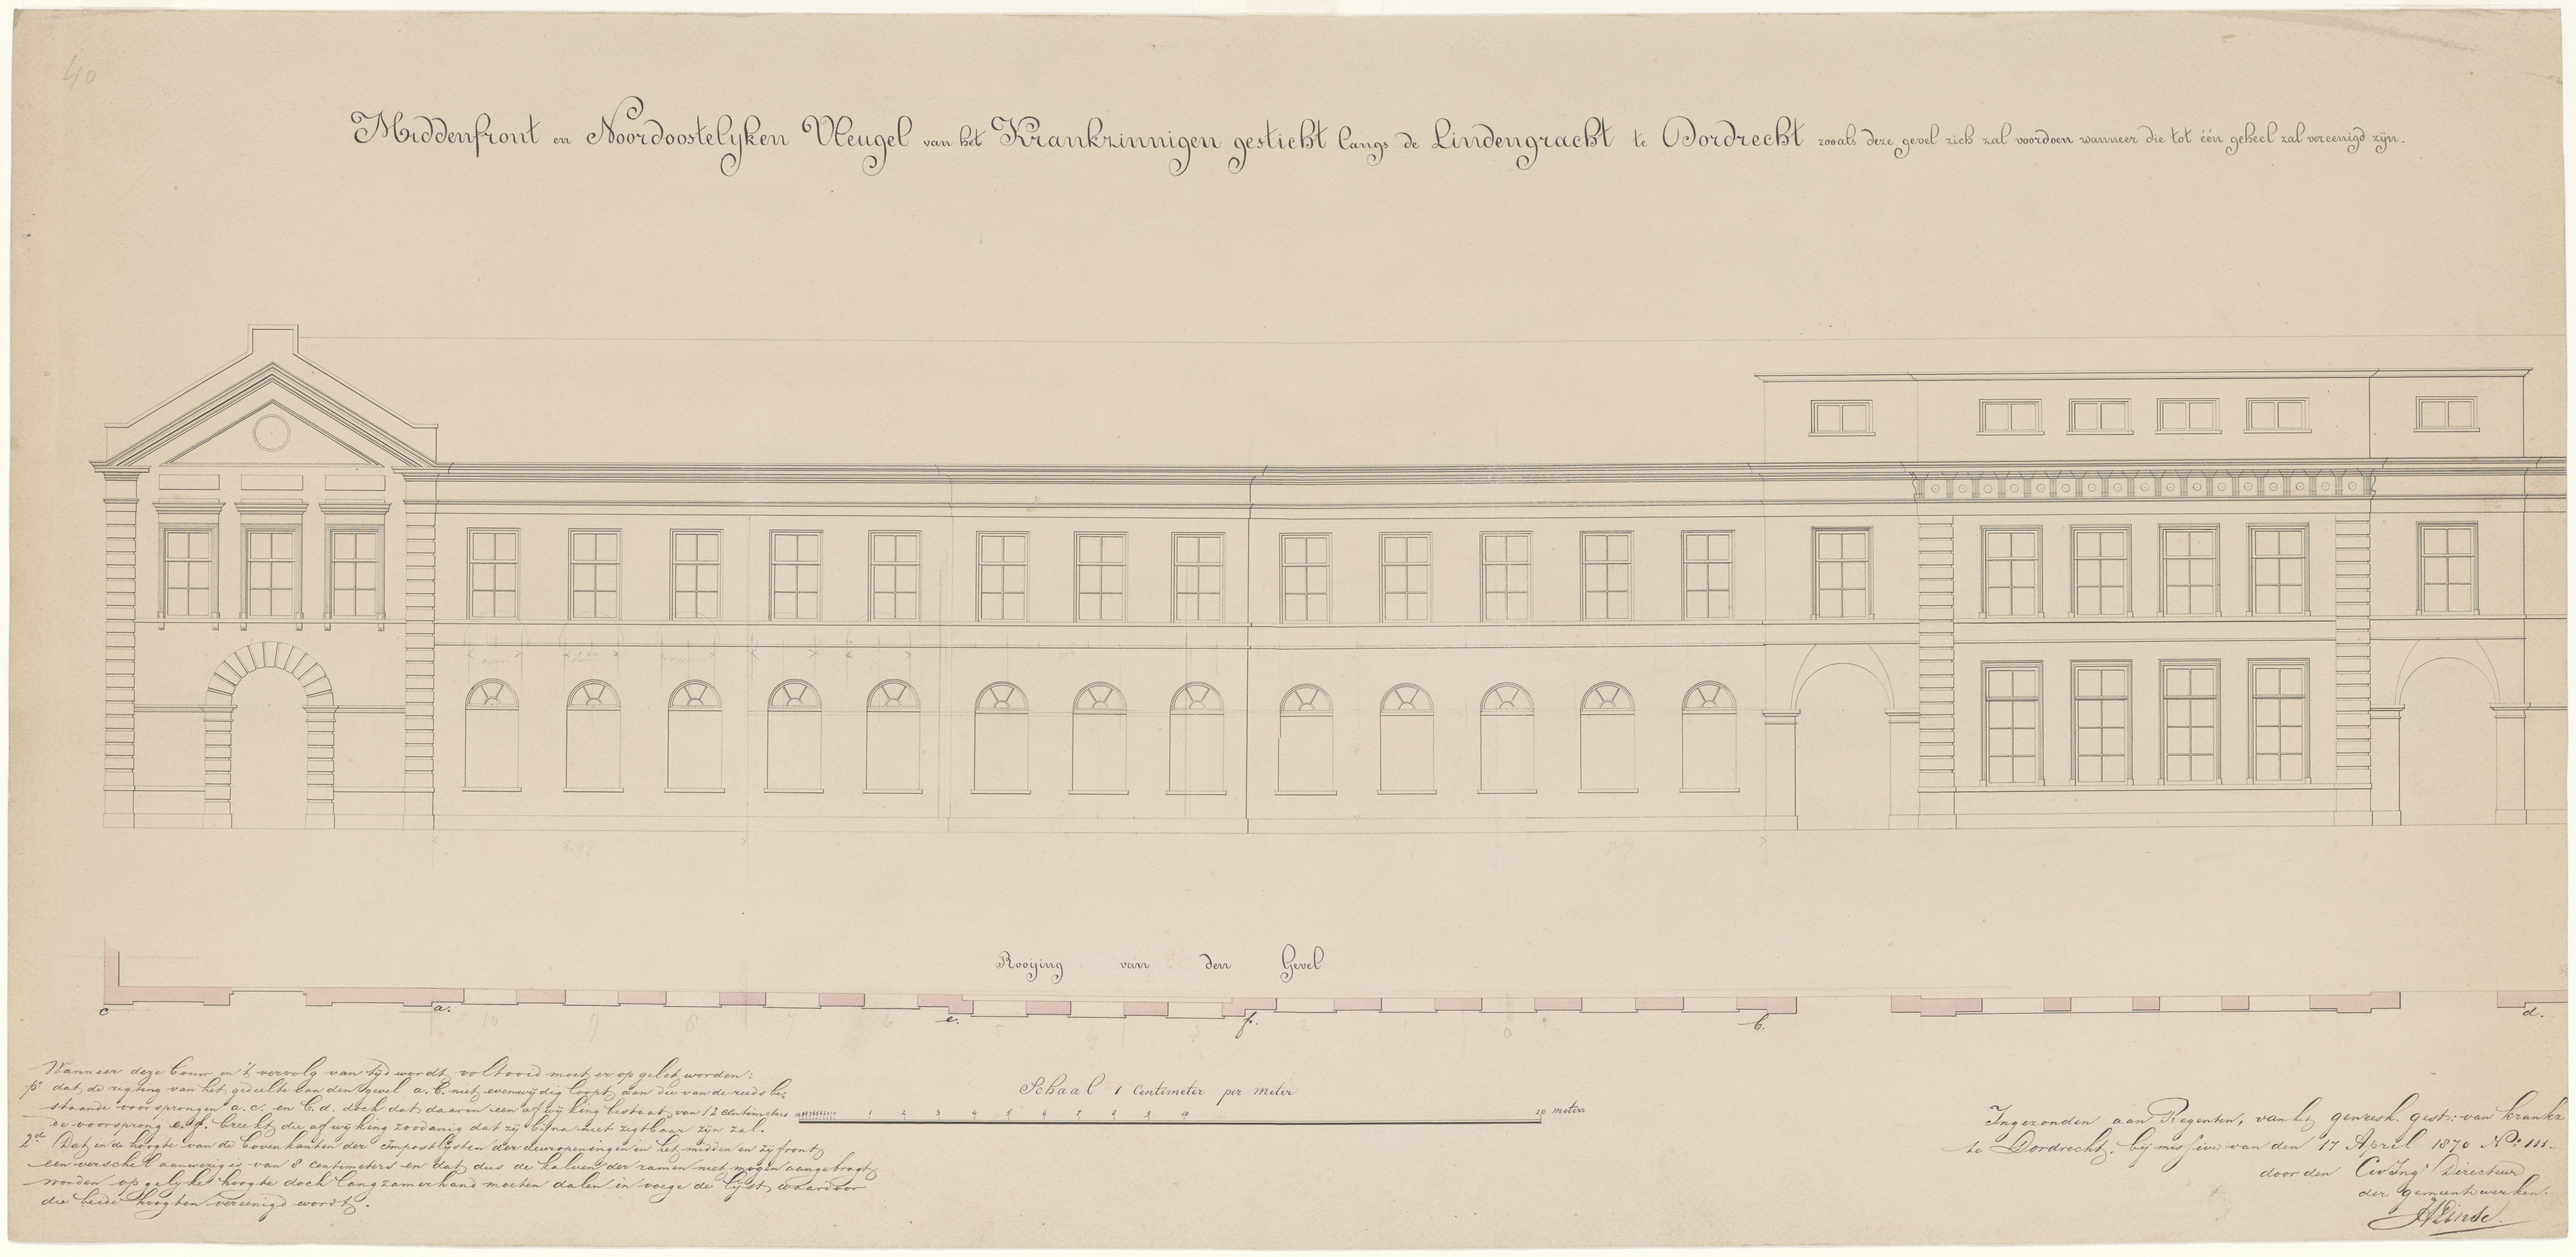 40
Middenfront en Noordoostelyken Vleugel van het Krankzinnigen gesticht langs de Lindengracht te Dordrecht zooals deze gevel zich zal voordoen wanneer die tot één geheel zal vereenigd zyn.
Rooijing van den Gevel
c a. e. f. b. d.
10 9 8 7 6 5 4 3 2 1
Wanneer deze bouw in 't vervolg van tyd wordt voltooid moet er op gelet worden:
1o dat de rigting van het gedeelte van den gevel a. b. niet evenwydig loopt aan die van de reeds be-
staande voorsprongen a. c. en b. d. doch dat daarin een afwyking bestaat van 12 centimeters
de voorsprong e. f. breekt die afwyking zoodanig dat zy byna niet zigtbaar zyn zal.
2de Dat in de hoogte van de bovenkanten der impostlysten der deuropeningen in het midden en zyfront
een verschil aanwezig is van 8 centimeters en dat dus de kalven der ramen niet mogen aangebragt
worden op gelyke hoogte doch langzamerhand moeten dalen in voege de lyst waardoor
die beide hoogten vereenigd wordt.
Schaal 1 Centimeter per meter
1 2 3 4 5 6 7 8 9 10 20 meters
Ingezonden aan Regenten, van het geneesk. gest: van krankz
te Dordrecht, by missive van den 17 April 1870 No 111.
door den Civ Ingr Directeur
der gemeentewerken.